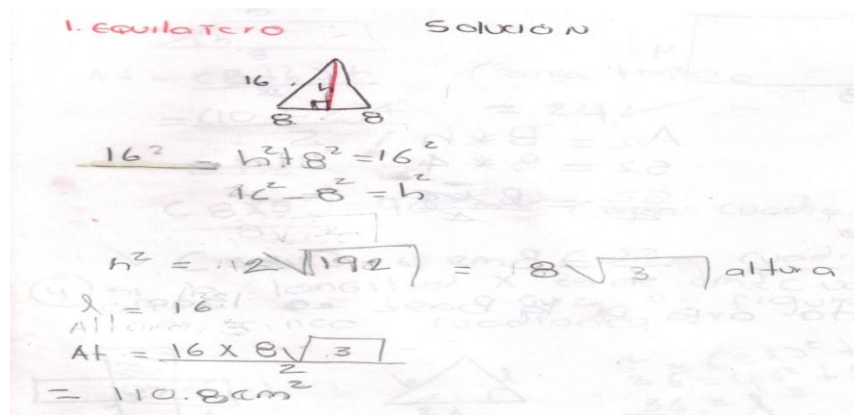 1. Equilatero Solución
16 h
8 8
16² = h²+8²=16²
16² - 8² = h²
h² = 2√192 = 8√3 altura
l = 16
At = 16 x 8√3
2
= 110.8cm²